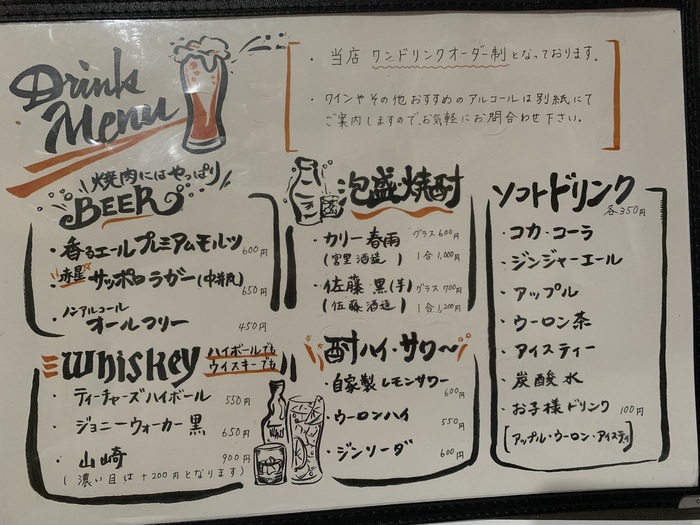 Drink
Menu
・当店 ワンドリンクオーダー制となっております。
・ワインやその他おすすめのアルコールは別紙にて
ご案内しますのでお気軽にお問合わせ下さい。
焼肉にはやっぱり
BEER
・香るエールプレミアムモルツ 600円
・赤星 サッポロラガー(中瓶) 650円
・ノンアルコール
オールフリー 450円
泡盛・焼酎
・カリー春雨 グラス600円
(宮里酒造) 1合1,000円
・佐藤 黒(芋) グラス700円
(佐藤酒造) 1合1,200円
ソフトドリンク
各350円
・コカ・コーラ
・ジンジャーエール
・アップル
・ウーロン茶
・アイスティー
・炭酸水
・お子様ドリンク 100円
[アップル・ウーロン・アイスティ]
Whiskey ハイボールでも
ウイスキーでも
・ティーチャーズハイボール 550円
・ジョニーウォーカー黒 650円
・山崎 900円
(濃い目は+200円となります)
酎ハイ・サワ〜
・自家製レモンサワー
600円
・ウーロンハイ 550円
・ジンソーダ 600円